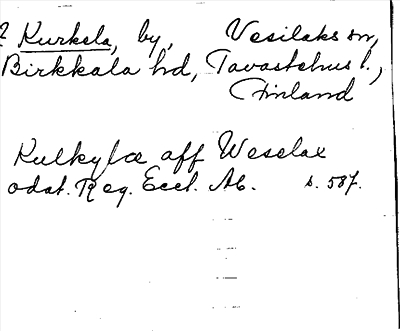 ? Kurkela, by, Vesilaks sn,
Birkkala hd, Tavastehus l.,
Finland
Kulkylæ aff Weselax
odat. Reg. Eccl. Ab. s. 587.